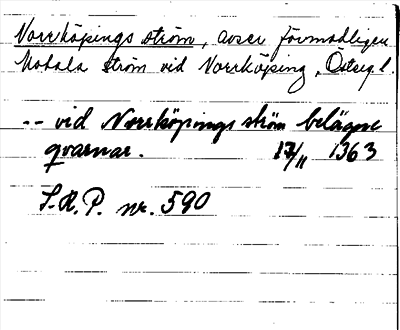 Norrköpings ström, avser förmodligen
Motala ström vid Norrköping, Östergl.
-- vid Norrköpings ström belägne
qvarnar. 17/11 1363
S.R.P. nr. 590